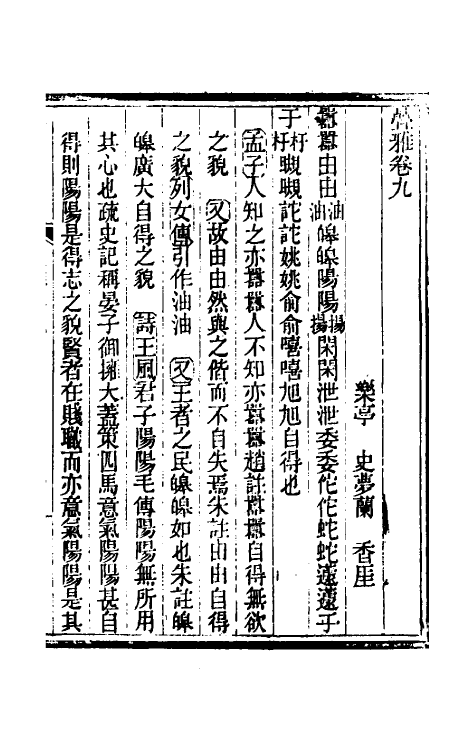 疊雅卷九
樂亭 史夢蘭 香厓
囂囂由由油油皞皞陽陽揚揚閑閑泄泄委委佗佗蛇蛇蘧蘧于
于盱盱睍睍詫詫姚姚俞俞嘻嘻旭旭自得也
孟子人知之亦囂囂人不知亦囂囂趙註囂囂自得無欲
之貌 又故由由然與之偕而不自失焉朱註由由自得
之貌列女傳引作油油 又王者之民皞皞如也朱註皞
皞廣大自得之貌 詩王風君子陽陽毛傳陽陽無所用
其心也疏史記稱晏子御擁大蓋策四馬意氣陽陽甚自
得則陽陽是得志之貌賢者在賤職而亦意氣陽陽是其